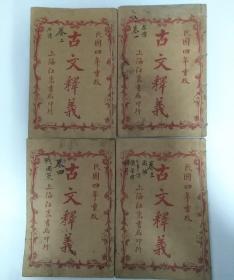 民國四年重校
古文釋義
上海江東書局印行
卷一
左傳
民國四年重校
古文釋義
上海江東書局印行
卷二
左傳
民國四年重校
古文釋義
上海江東書局印行
卷三
民國四年重校
古文釋義
上海江東書局印行
卷四
戰國策